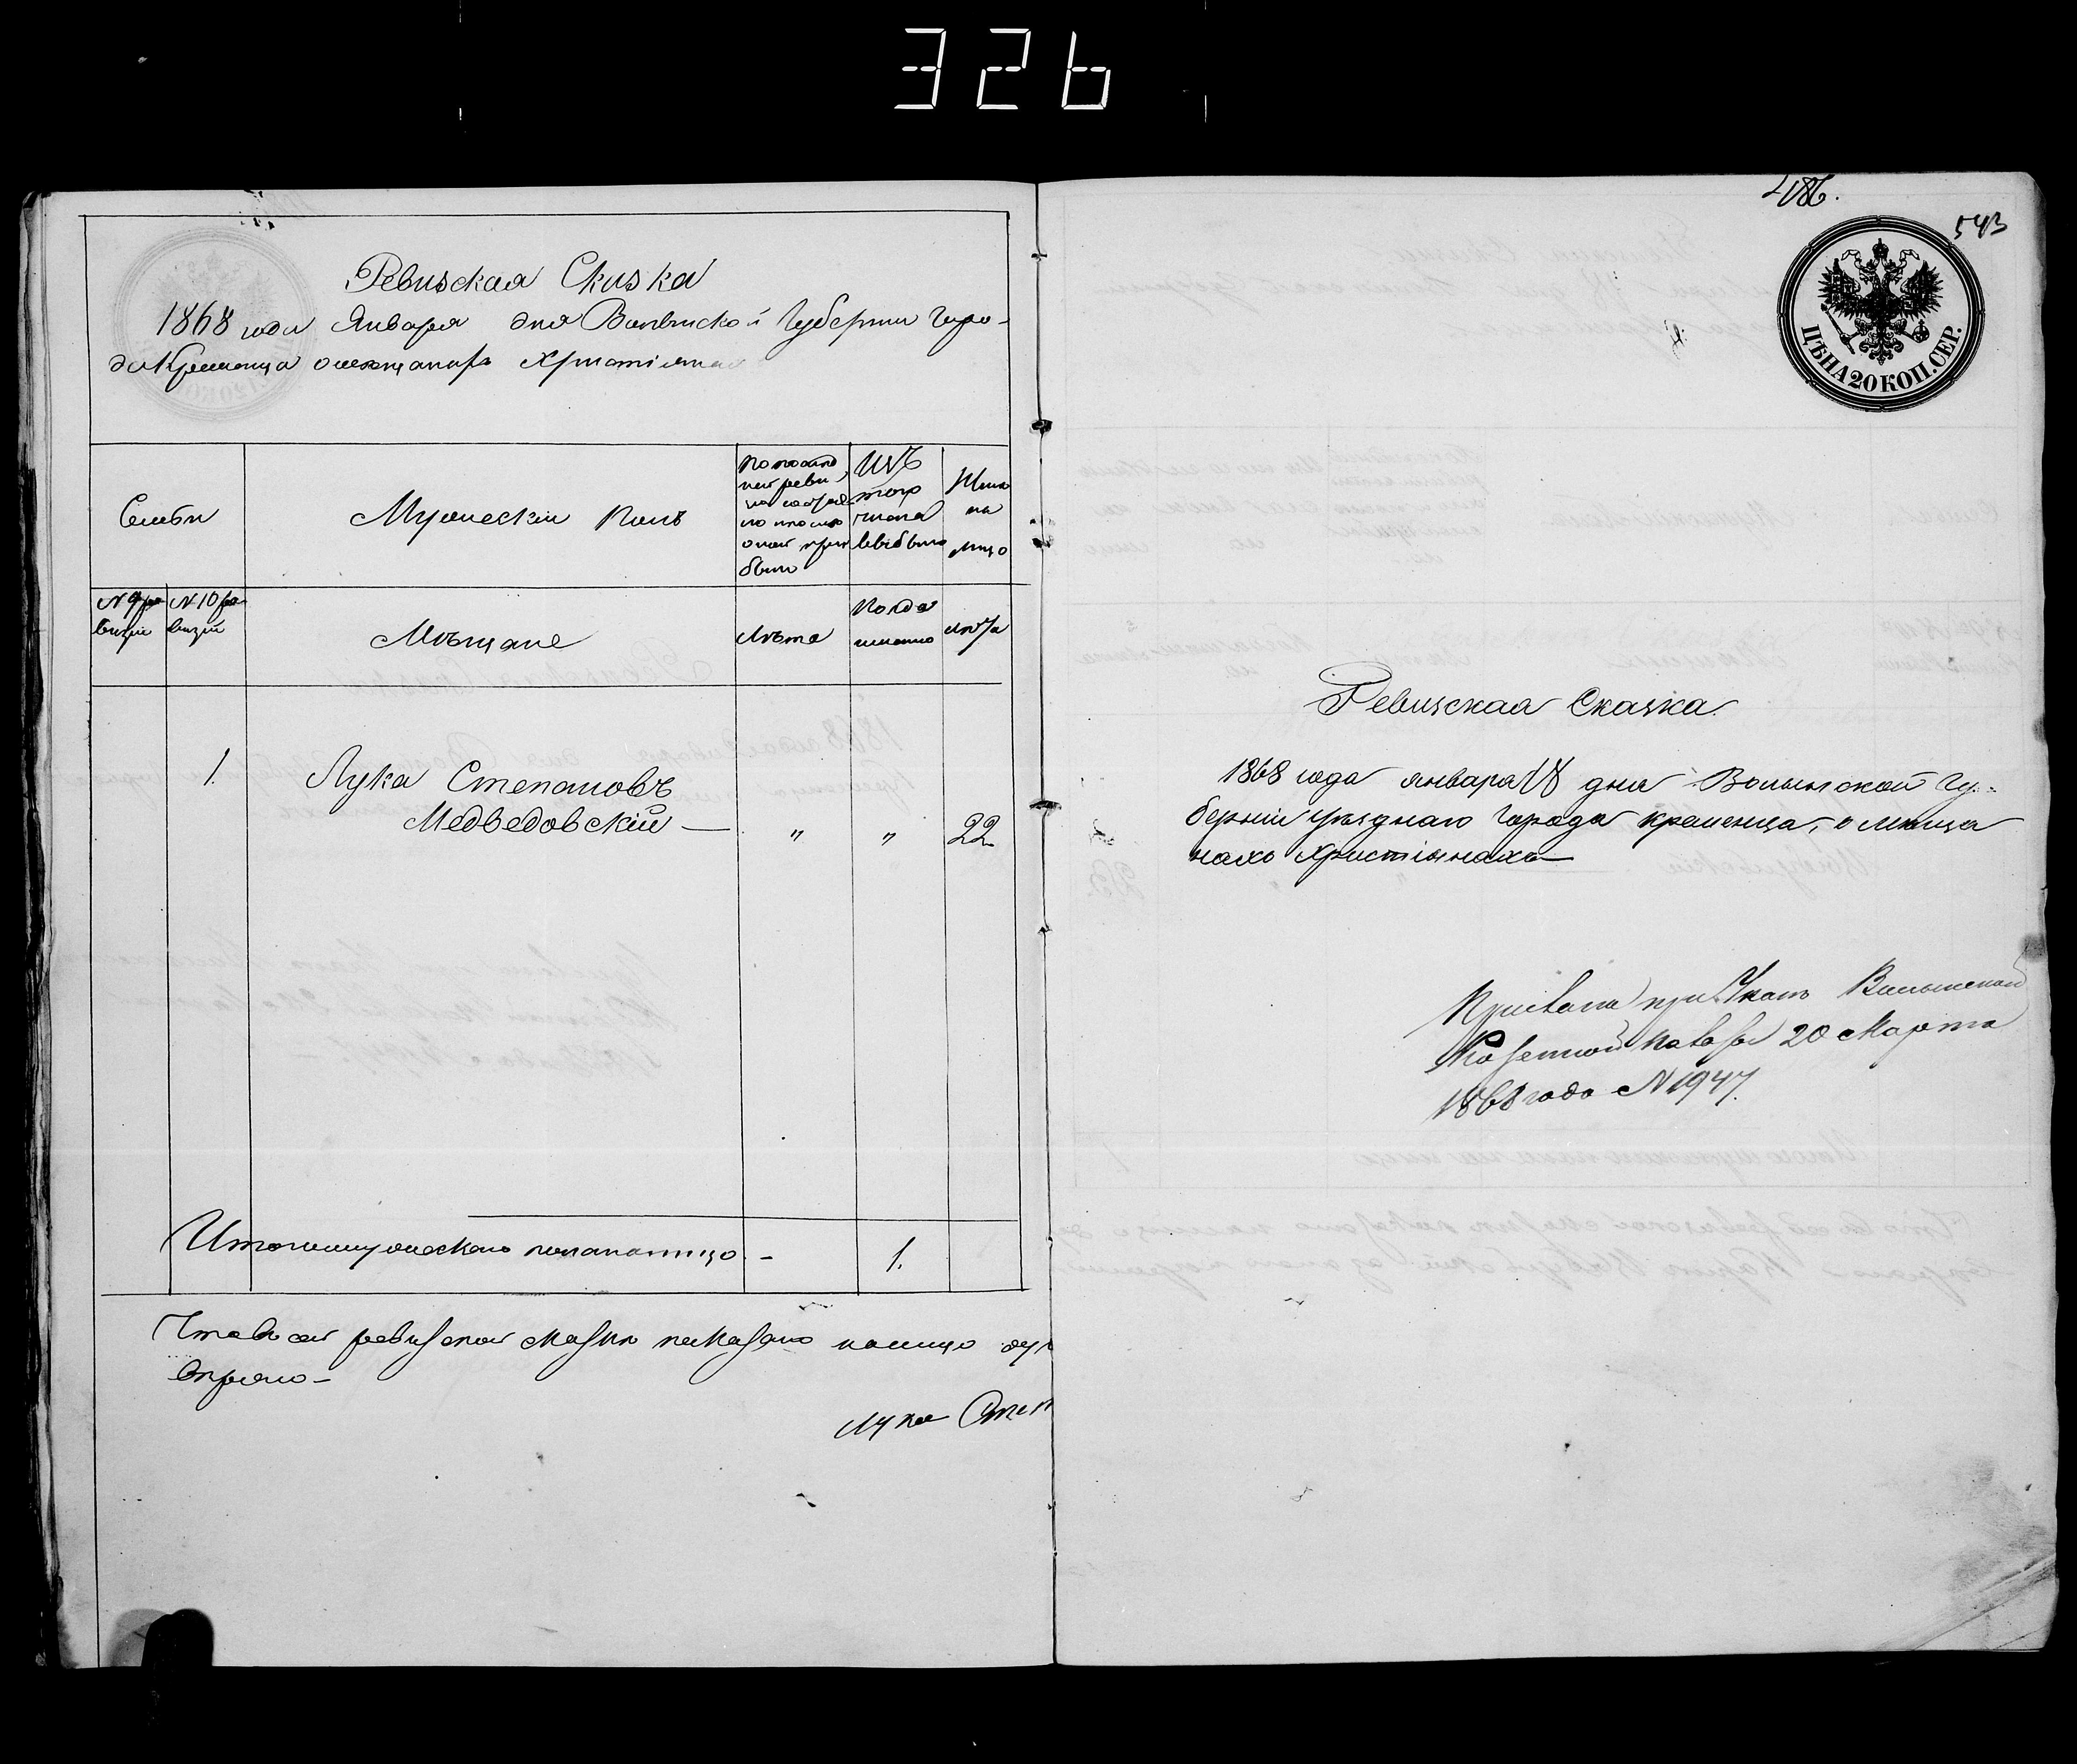 326
Ревизская Сказка
1868 года Января дня Волынской Губернии горо-
да Кременца о мещанахъ Христіянах
Семьи
Мужескій Полъ
По послѣд
ней реви
было
Изъ
того
числа
выбыло
Ныне
на
лицо
N 9 ре
визіи
N 10 ре
визіи
Мѣщане
Лѣта
Когда
именно
Лѣта
1.
Лука Степановъ
Медведовскій —
"
"
22
Итого мужескаго пола на лицо -
1.
Что въ сей ревизской сказки показано на лицо
верно -
Лука Степ
486.
543
ЦѢНА 20 КОП. СЕР.
Ревизская Сказка.
1868 года января 18 дня Волынской Гу-
берніи уѣзднаго города кременца, о мѣща
нахъ Христіянахъ —
Прислана при Указѣ Волынской
Казенной Палаты 20 Марта
1868 года N 1947.